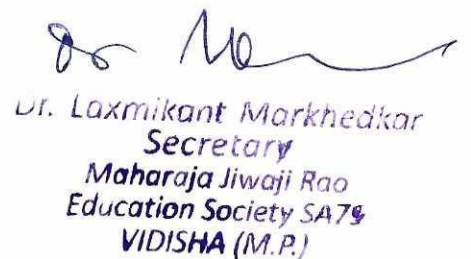 Dr. Laxmikant Markhedkar
Secretary
Maharaja Jiwaji Rao
Education Society
VIDISHA (M.P.)